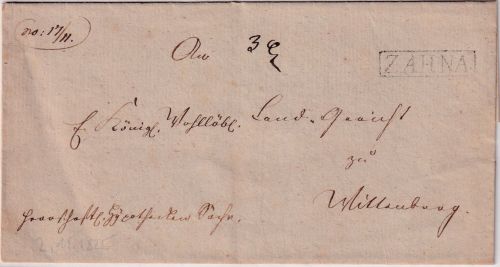 no: 17/11.
An
ZAHNA
E. Königl. Wohllöbl. Land-Gericht
zu
Wittenberg.
Herrschaftl. Hypothecken Sache.